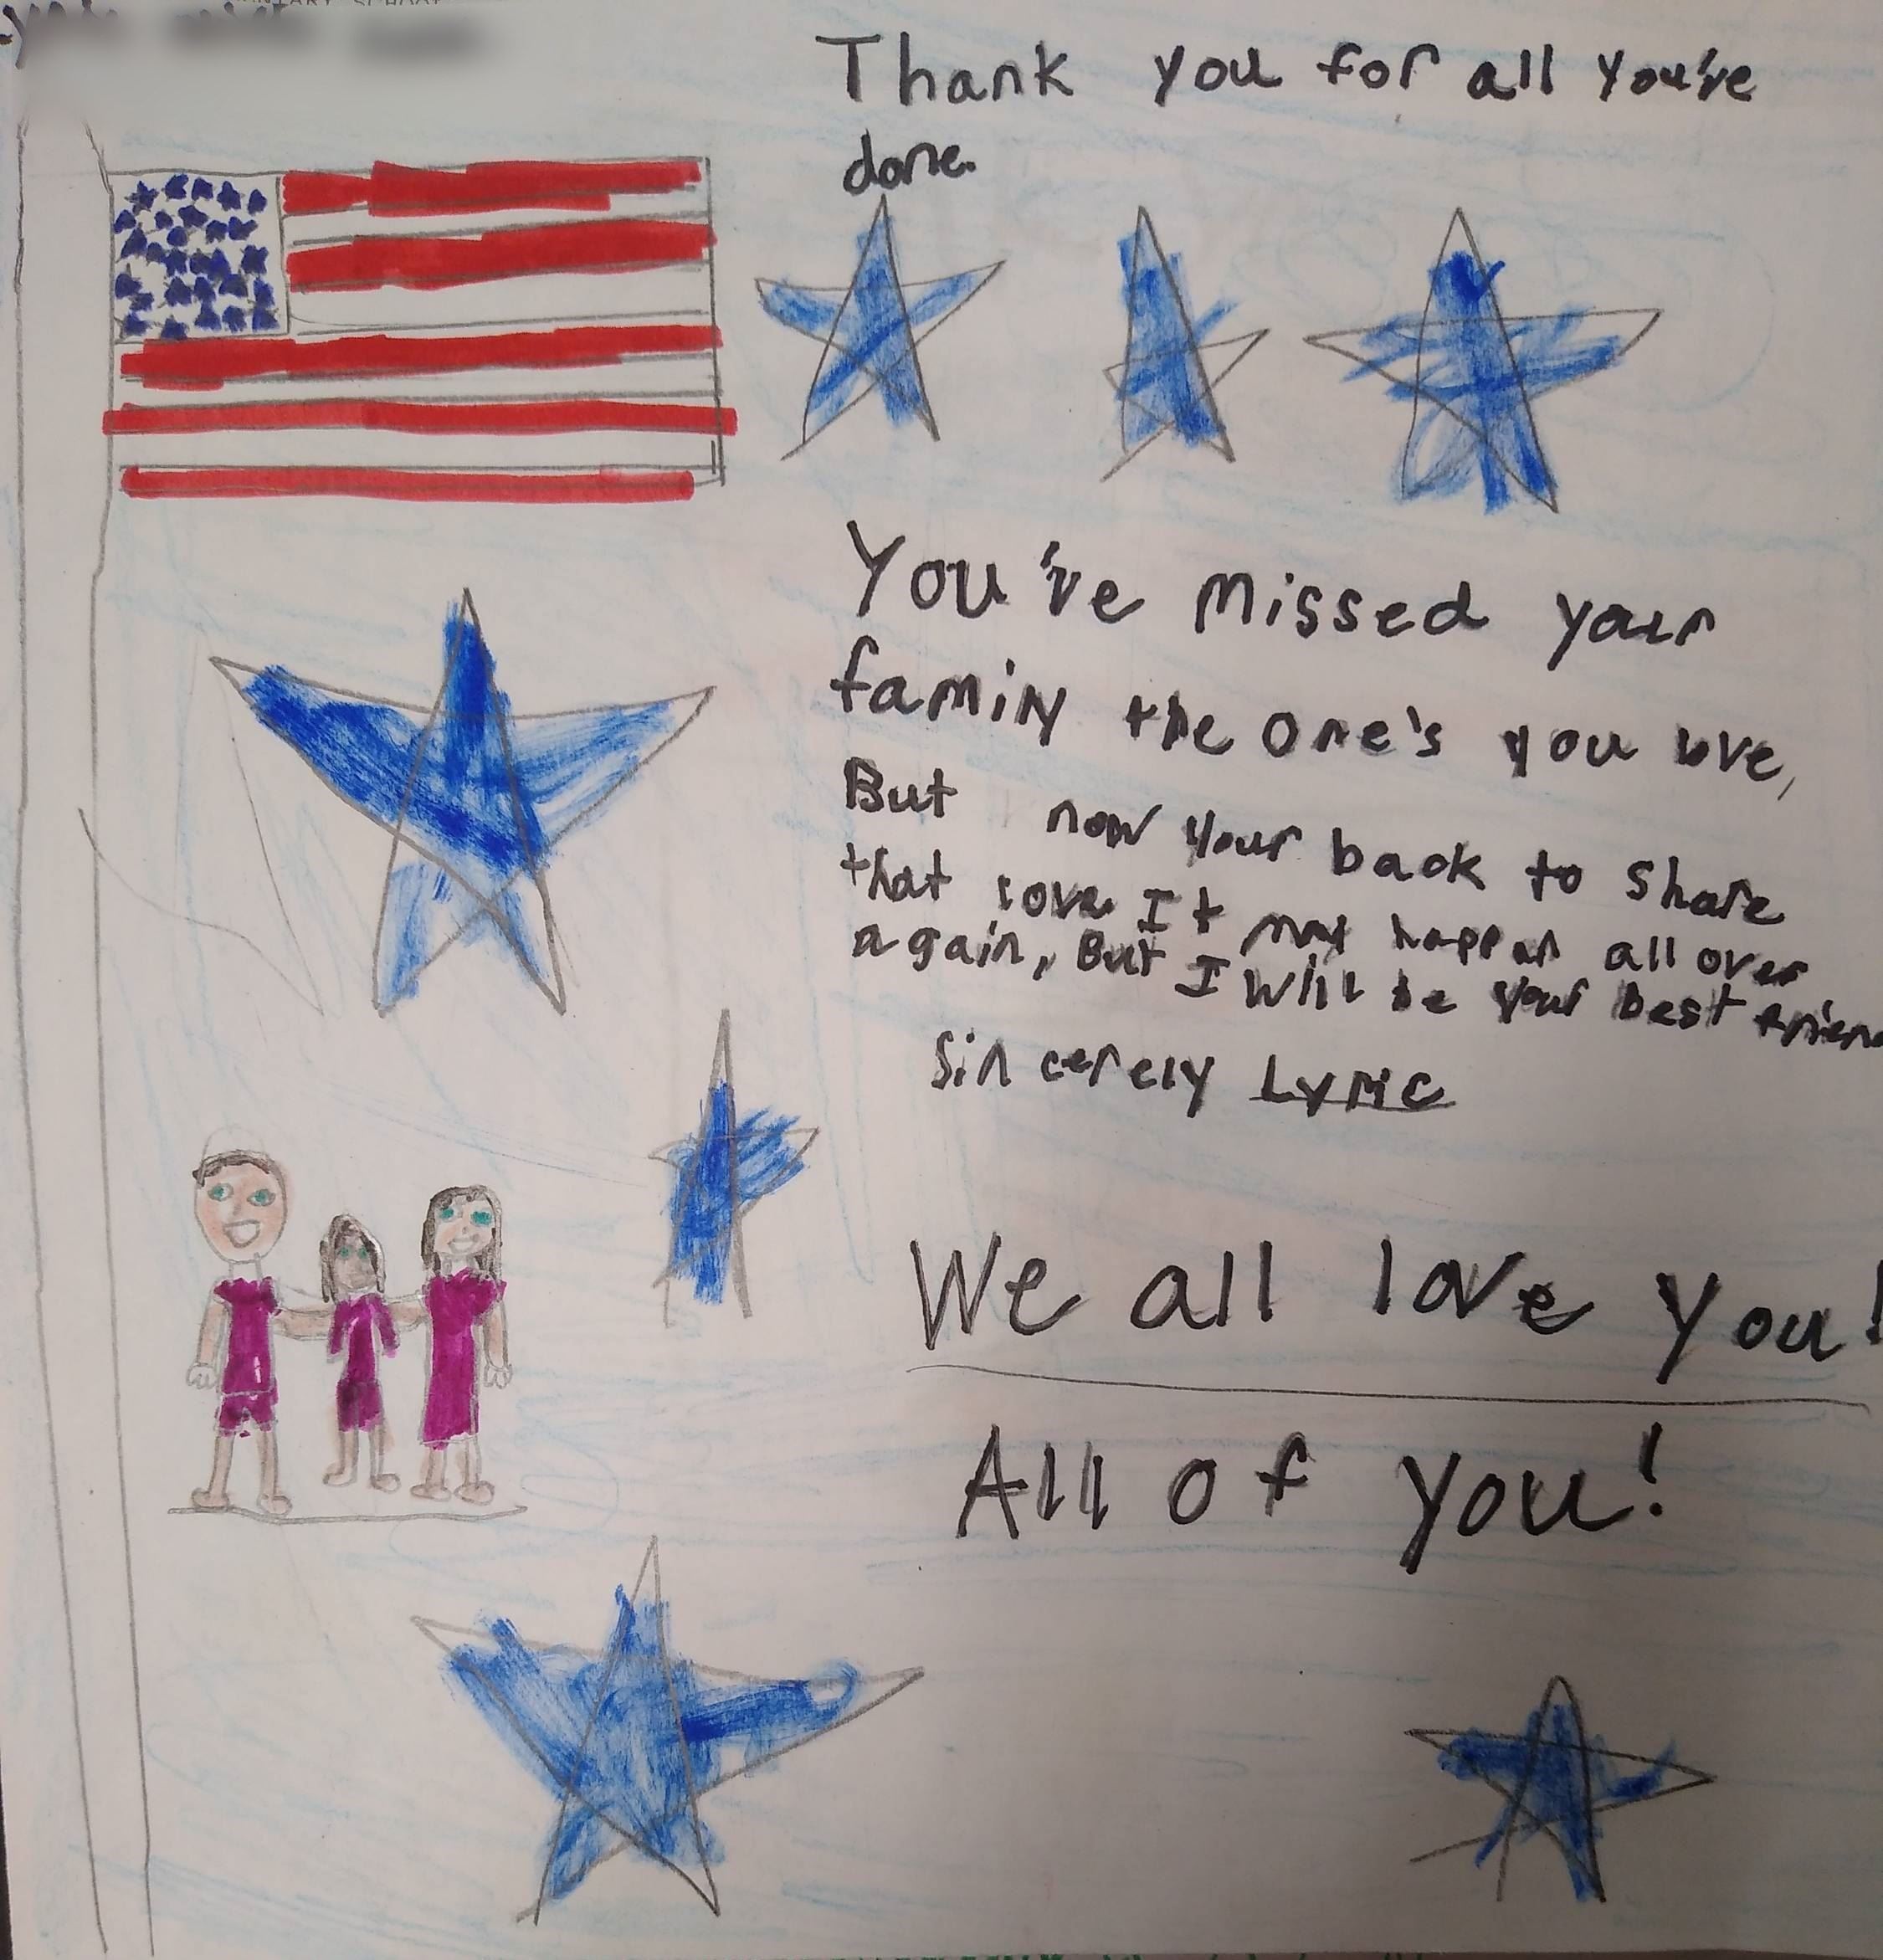 Thank you for all you've
done.
You've missed your
family the one's you love,
But now your back to share
that love It may happen all over
again, But I will be your best frien
Sincerely Lyric
We all love you!
All of you!